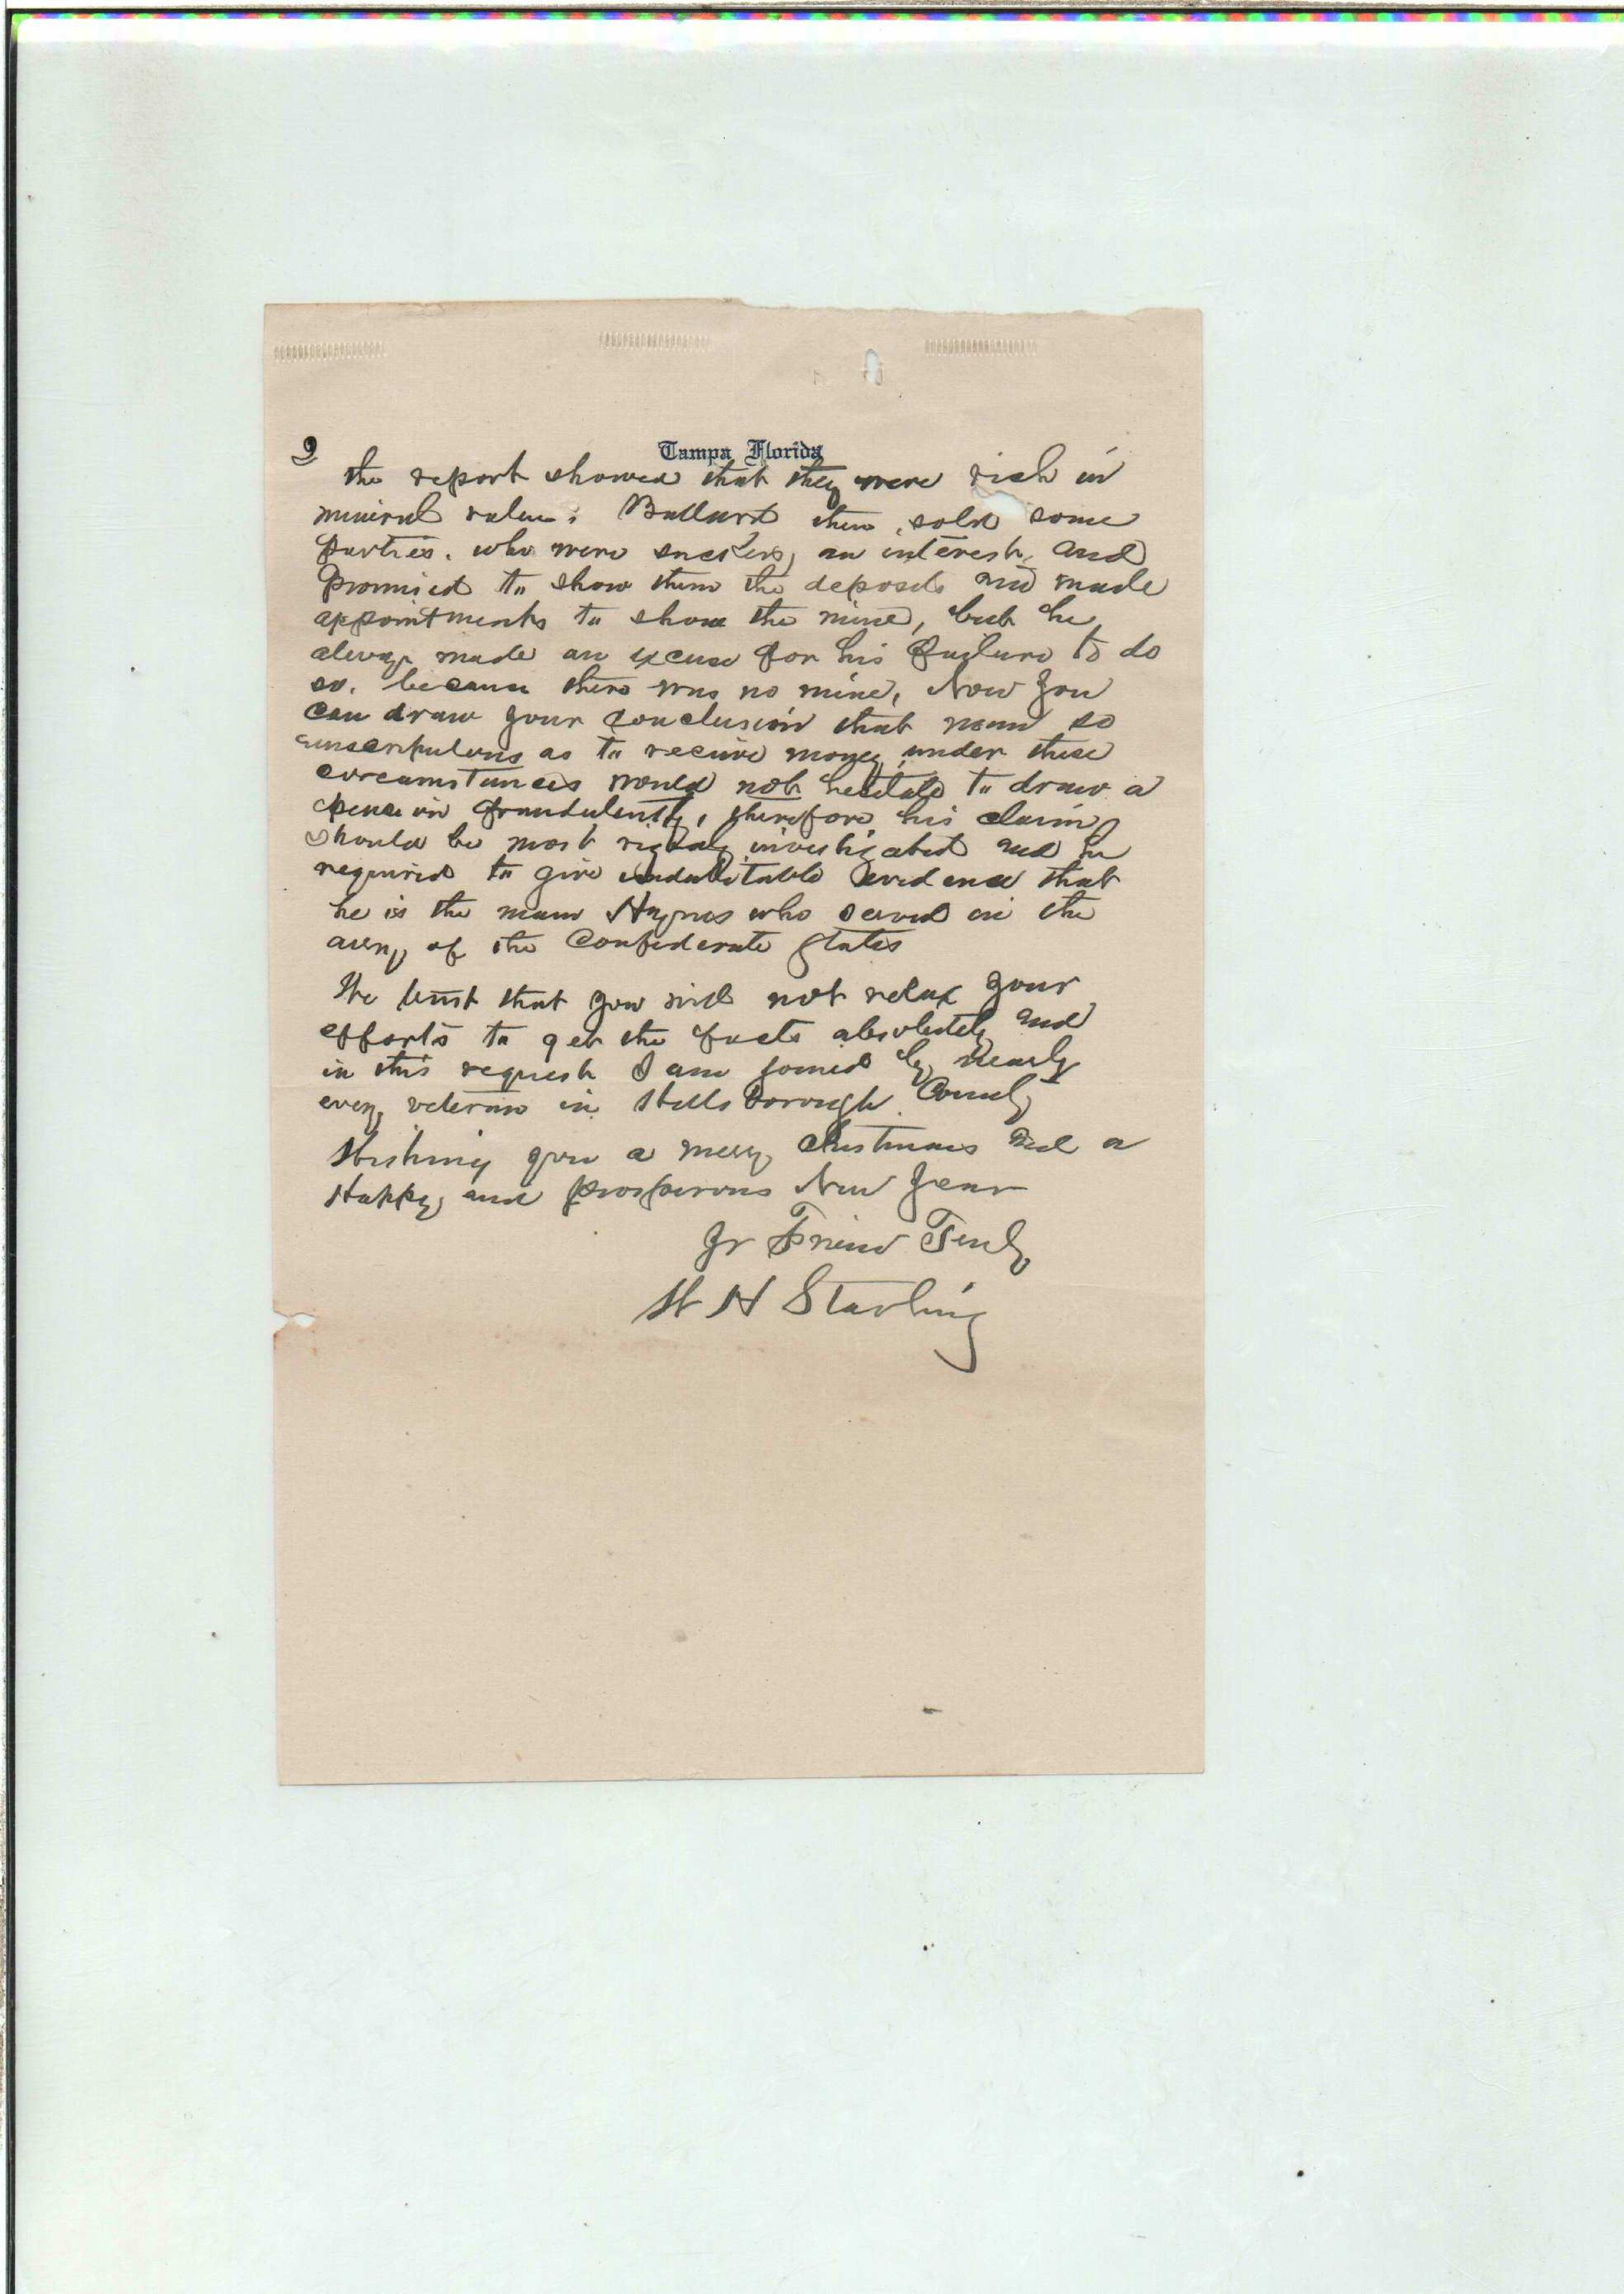 9
Tampa Florida
the report showed that they were rich in
mineral values. Bullard then sold some
parties, who were suckers, an interest, and
promised to show them the deposits and made
appointments to show the mine, but he
always made an excuse for his failure to do
so, because there was no mine, Now you
can draw your conclusion that man so
unscrpulous as to receive money under these
circumstances would not hesitate to draw a
pension fraudulently, therefore his claim
should be most rigidly investigated and he
required to give indubitable evidence that
he is the man Haynes who served in the
army of the Confederate States
We trust that you will not relax your
efforts to get the facts absolutely and
in this request I am joined by nearly
every veteran in Hillsborough County
Wishing you a merry Christmas and a
Happy and prosperous New Year
Yr Friend Truly
W H Starling